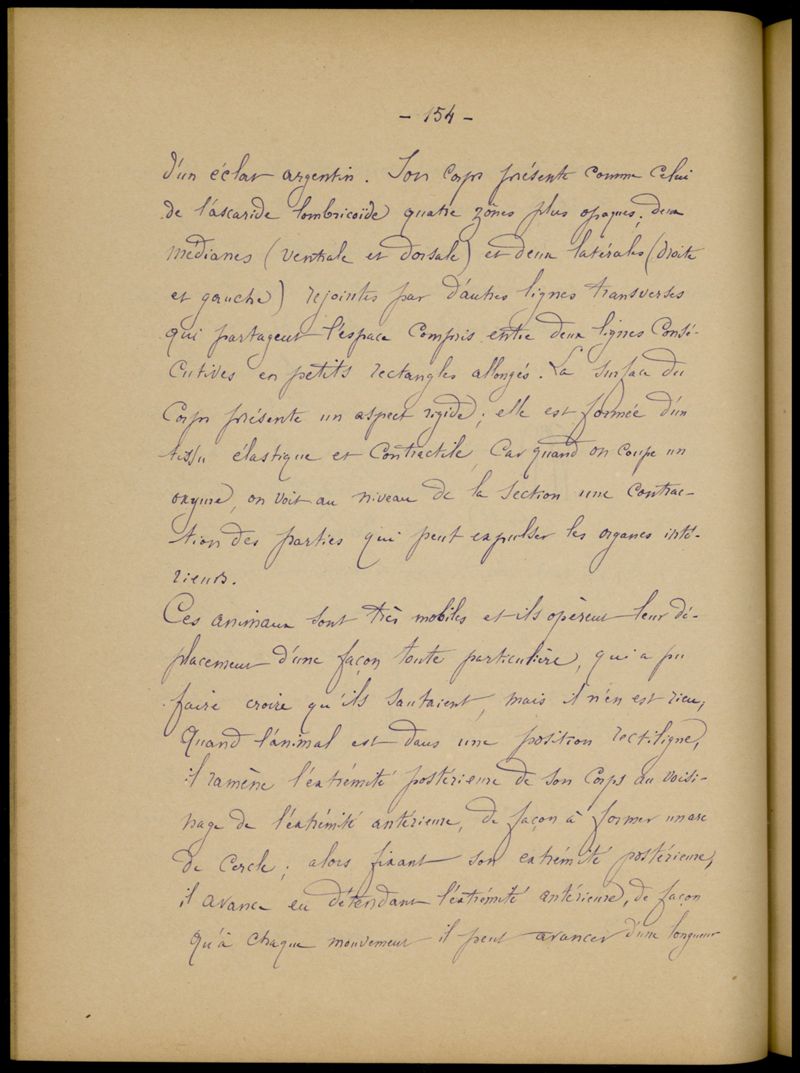 - 154 -
d'un éclat argentin. Son corps présente comme celui
de l'ascaride lombricoïde quatre zônes plus opaques, deux
médianes (ventrale et dorsale) et deux latérales (droite
et gauche) rejointes par d'autres lignes transverses
qui partagent l'espace compris entre deux lignes consé-
cutives en petits rectangles allongés. La surface du
corps présente un aspect rigide; elle est formée d'un
tissu élastique et contractile, car quand on coupe un
oxyure, on voit au niveau de la section une contrac-
tion des parties qui peut expulser les organes inté-
rieurs.
Ces animaux sont très mobiles et ils opèrent leur dé-
placement d'une façon toute particulière, qui a pu
faire croire qu'ils sautaient, mais il n'en est rien;
Quand l'animal est dans une position rectiligne,
il ramène l'extrémité postérieure de son corps au voisi-
nage de l'extrémité antérieure, de façon à former un arc
de cercle; alors fixant son extrémité postérieure,
il avance en détendant l'extrémité antérieure, de façon
qu'à chaque mouvement il peut avancer d'une longueur